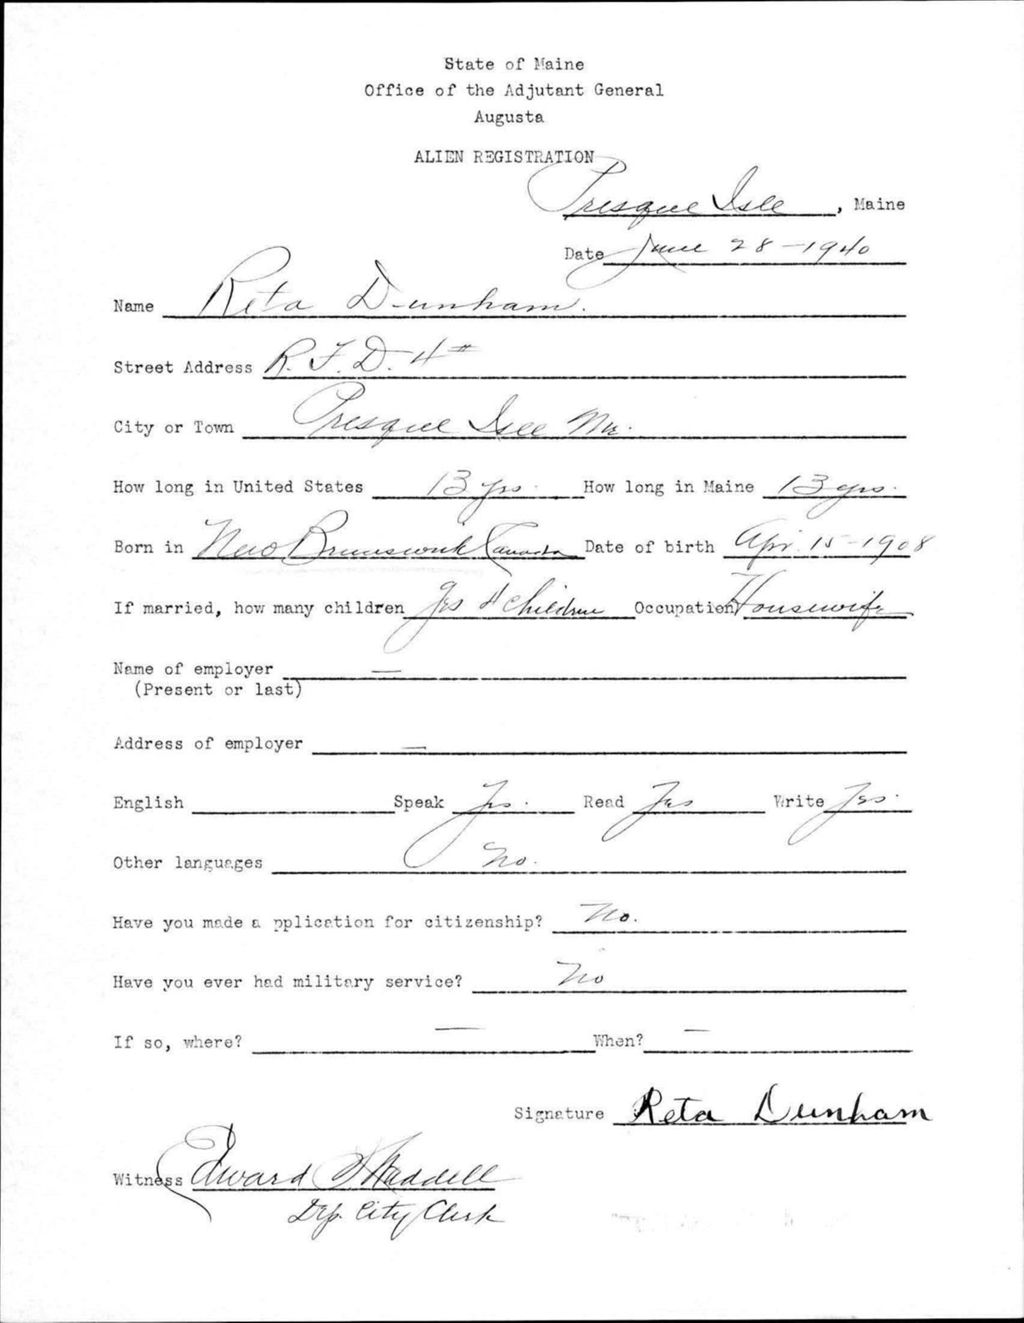 State of Maine
Office of the Adjutant General
Augusta
ALIEN REGISTRATION
Presque Isle, Maine
Date June 28 - 1940
Name Reta Dunham.
Street Address R. F. D. 4#
City or Town Presque Isle Me.
How long in United States 13 yrs. How long in Maine 13 yrs.
Born in New Brunswick Canada Date of birth Apr. 15 - 1908
If married, how many children Yes 4 Children Occupation Housewife
Name of employer —
(Present or last)
Address of employer —
English Speak Yes. Read Yes Write Yes.
Other languages No.
Have you made a pplication for citizenship? No.
Have you ever had military service? No
If so, where? — When? —
Signature Reta Dunham
Witness Edward Waddell
Dep. City Clerk